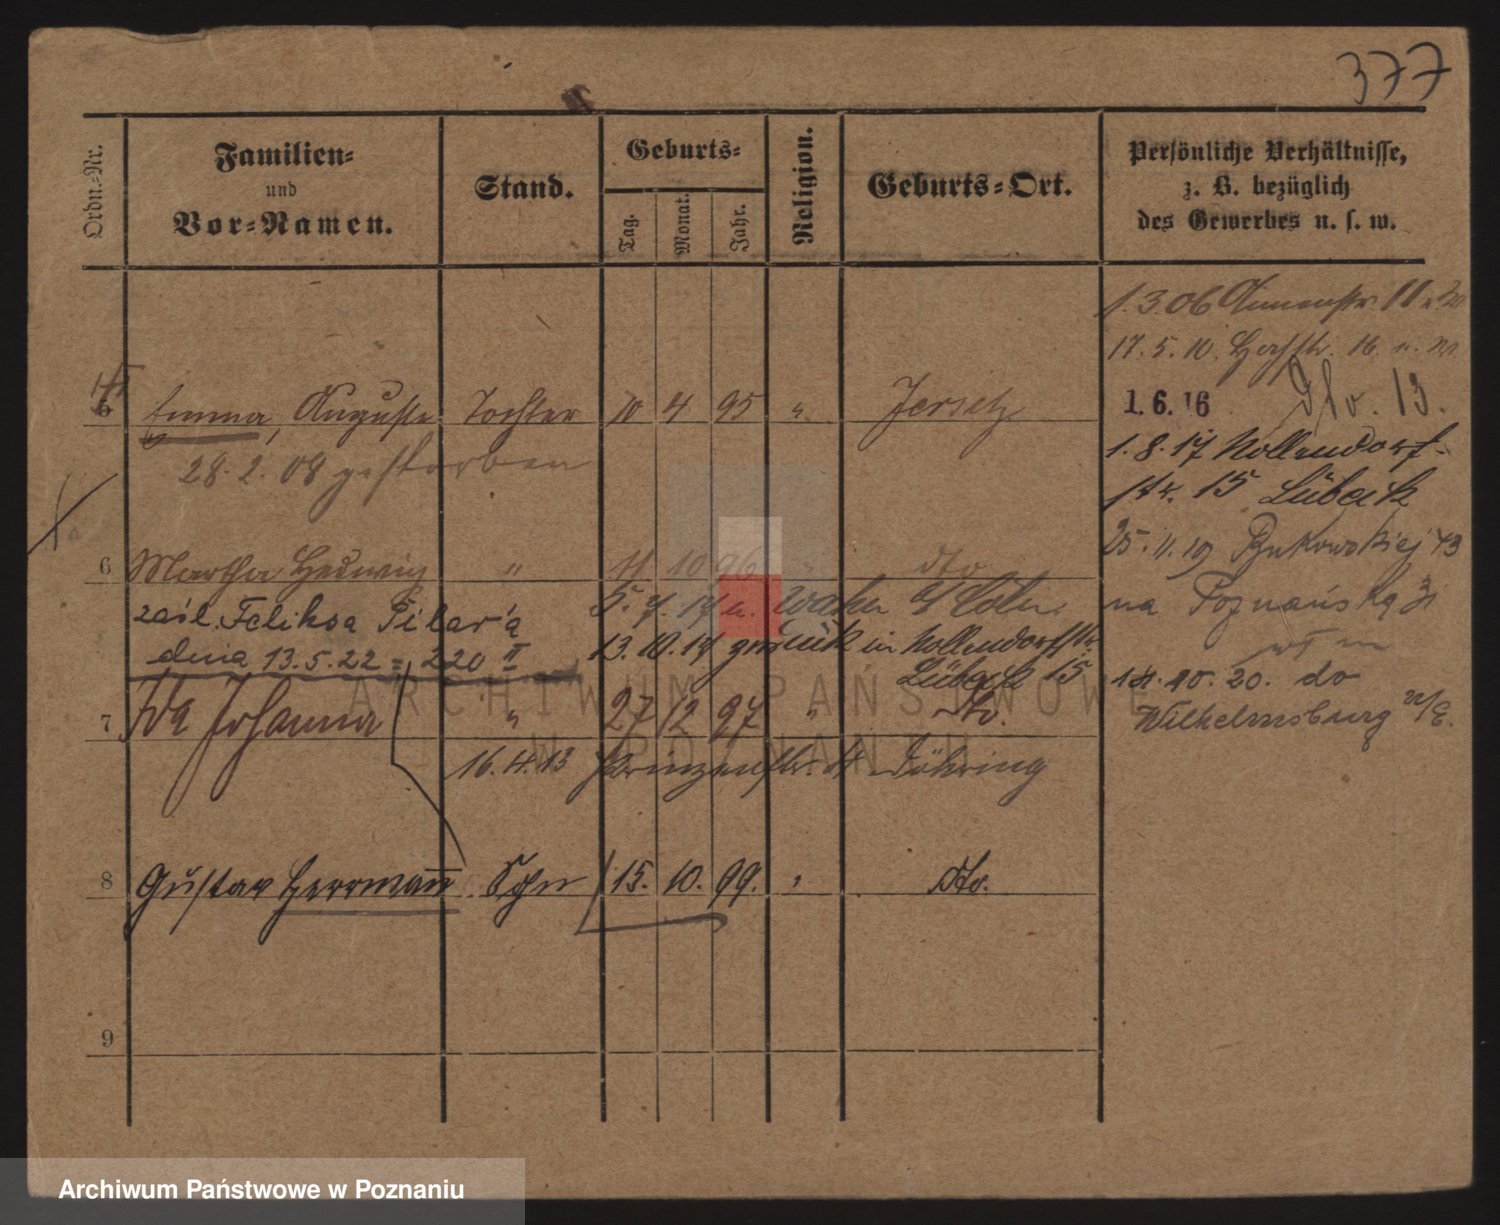 377
Ordn.-Nr.
Familien-
und
Vor-Namen.
Stand.
Geburts-
Tag.
Monat.
Jahr.
Religion.
Geburts-Ort.
Persönliche Verhältnisse,
z. B. bezüglich
des Gewerbes u. s. w.
1.3.06 Annenstr. 11
17.5.10. Hochstr. 16
5 Emma, Auguste Tochter 10 4 95 " Jersitz
1.6.16 Dto. 13.
28.2.08 gestorben
1.8.17 Nollendorf-
str. 15 Lübeck
6 Martha Hedwig " 11 10 96 " dto.
25.11.19 Bukowskiej 43
zaśl. Feliksa Pilar'a
5.7.17 n. Wahn b/ Cöln
na Poznańską 31
dnia 13.5.22 = 220 II
13.10.17 zurück in Nollendorfstr.
Lübeck 15
14.10.20. do
Wilhelmsburg a/E.
7 Ida Johanna " 27 12 97 " dto.
16.4.13 Prinzenstr. 4 Döhring
8 Gustav Herrmann Sohn 15. 10. 99. " dto.
9
ARCHIWUM PAŃSTWOWE
W POZNANIU
Archiwum Państwowe w Poznaniu